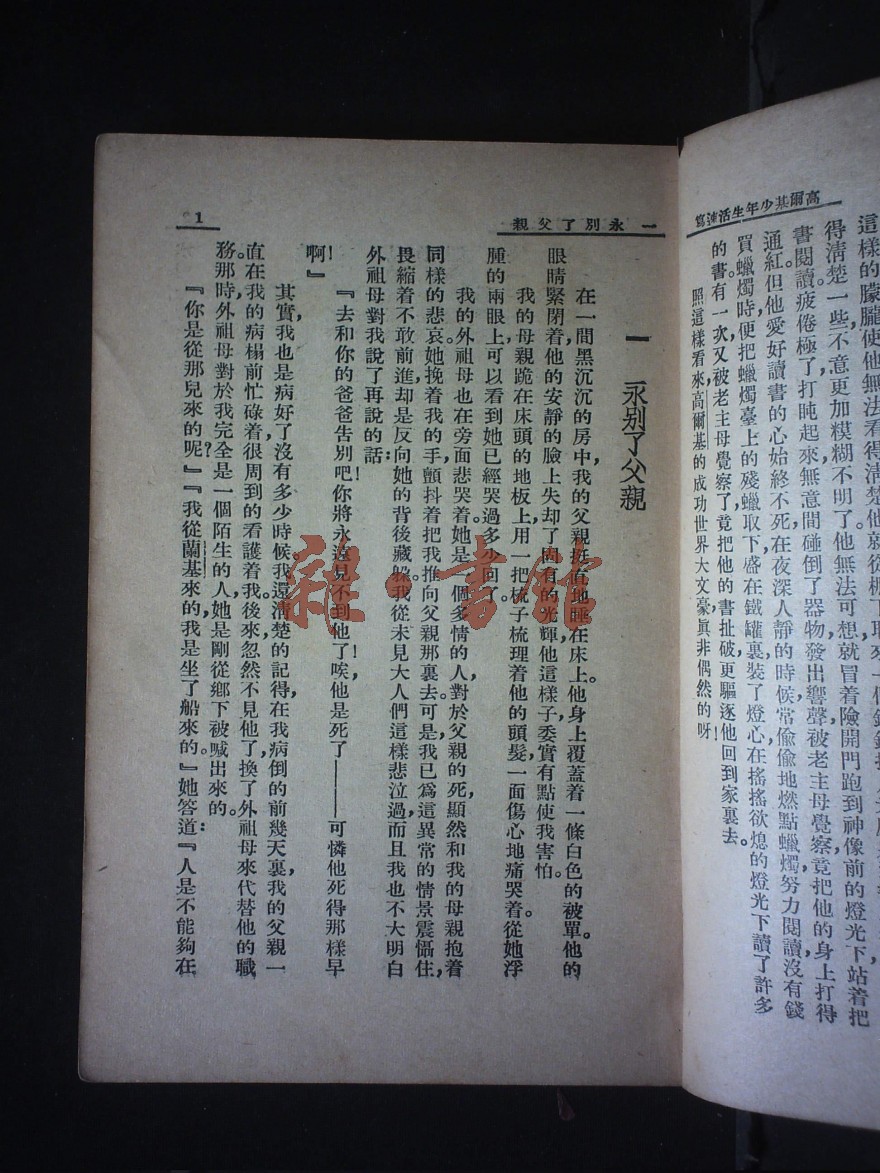 高爾基少年生活速寫
這樣的朦朧使他無法看得清楚他就從棚下
得清楚一些不意更加模糊不明了。他無法可想就冒着險開門跑到神像前的燈光下站着把
書閱讀疲倦極了打盹起來無意間碰倒了器物發出響聲被老主母覺察竟把他的身上打得
通紅但他愛好讀書的心始終不死在夜深人靜的時候常偷偷地燃點蠟燭努力閱讀沒有錢
買蠟燭時便把蠟燭臺上的殘蠟取下盛在鐵罐裏裝了燈心在搖搖欲熄的燈光下讀了許多
的書有一次又被老主母覺察了竟把他的書扯破更驅逐他回到家裏去。
照這樣看來,高爾基的成功世界大文豪眞非偶然的呀!
一 永別了父親
1
一 永別了父親
在一間黑沉沉的房中,我的父親挺直地睡在床上。他身上覆蓋着一條白色的被單。他的
眼睛緊閉着他的安靜的臉上失却了固有的光輝他這樣子委實有點使我害怕。
我的母親跪在床頭的地板上用一把梳子梳理着他的頭髮一面傷心地痛哭着。從她浮
腫的兩眼上可以看到她已經哭過多少回了。
我的外祖母也在旁面悲哭着。她是一個多情的人,對於父親的死,顯然和我的母親抱着
同樣的悲哀她挽着我的手,顫抖着把我推向父親那裏去。可是,我已爲這異常的情景震懾住,
畏縮着不敢前進却是反向她的背後藏躲。我從未見大人們這樣悲泣過而且我也不大明白
外祖母對我說了再說的話:
『去和你的爸爸告別吧!你將永遠見不到他了!唉,他是死了——可憐他死得那樣早
啊!』
其實,我也是病好了沒有多少時候。我還淸楚的記得,在我病倒的前幾天裏,我的父親一
直在我的病榻前忙碌着很周到的看護着我後來,忽然不見他了,換了外祖母來代替他的職
務。那時外祖母對於我完全是一個陌生的人,她是剛從鄉下被喊出來的。
『你是從那兒來的呢?』『我從蘭基來的,我是坐了船來的。』她答道:『人是不能夠在
雜·書館